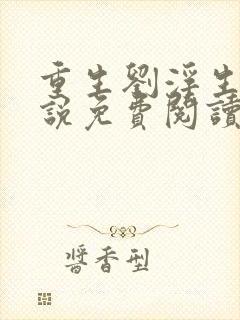 重生劉淫生
說免費閱讀
醬香型